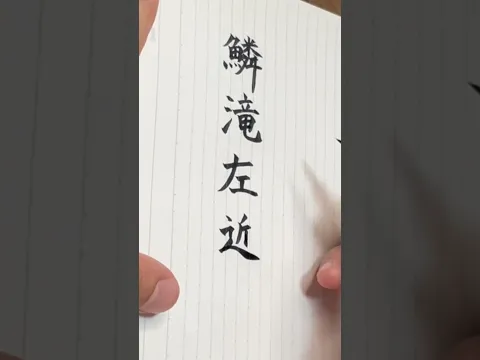 鱗滝左近